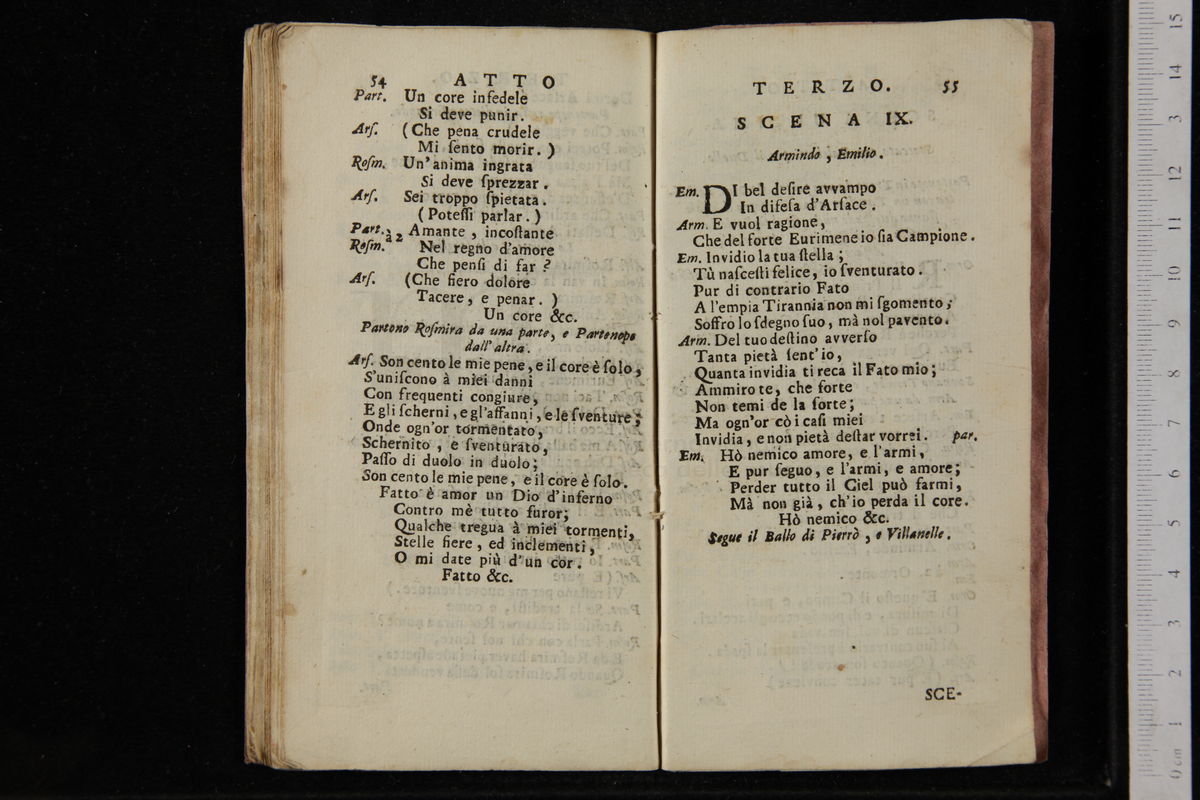 54 ATTO
Part. Un core infedele
Si deve punir.
Arſ. (Che pena crudele
Mi ſento morir.)
Roſm. Un'anima ingrata
Si deve ſprezzar.
Arſ. Sei troppo ſpietata.
(Poteſſi parlar.)
Part. Amante, incoſtante
Roſm. à 2 Nel regno d'amore
Che penſi di far?
Arſ. (Che fiero dolore
Tacere, e penar.)
Un core &c.
Partono Roſmira da una parte, e Partenope
dall'altra.
Arſ. Son cento le mie pene, e il core è ſolo,
S'uniſcono à miei danni
Con frequenti congiure,
E gli ſcherni, e gl'affanni, e le ſventure;
Onde ogn'or tormentato,
Schernito, e ſventurato,
Paſſo di duolo in duolo;
Son cento le mie pene, e il core è ſolo.
Fatto è amor un Dio d'inferno
Contro mè tutto furor;
Qualche tregua à miei tormenti,
Stelle fiere, ed inclementi,
O mi date più d'un cor.
Fatto &c.
TERZO. 55
SCENA IX.
Armindo, Emilio.
Em. DI bel deſire avvampo
In difeſa d'Arſace.
Arm. E vuol ragione,
Che del forte Eurimene io ſia Campione.
Em. Invidio la tua ſtella;
Tù naſceſti felice, io ſventurato.
Pur di contrario Fato
A l'empia Tirannia non mi ſgomento;
Soffro lo ſdegno ſuo, mà nol pavento.
Arm. Del tuo deſtino avverſo
Tanta pietà ſent'io,
Quanta invidia ti reca il Fato mio;
Ammiro te, che forte
Non temi de la ſorte;
Ma ogn'or cò i caſi miei
Invidia, e non pietà deſtar vorrei. par.
Em. Hò nemico amore, e l'armi,
E pur ſeguo, e l'armi, e amore;
Perder tutto il Ciel può farmi,
Mà non già, ch'io perda il core.
Hò nemico &c.
Segue il Ballo di Pierrò, e Villanelle.
SCE-
15
14
13
12
11
10
9
8
7
6
5
4
3
2
1
0 cm